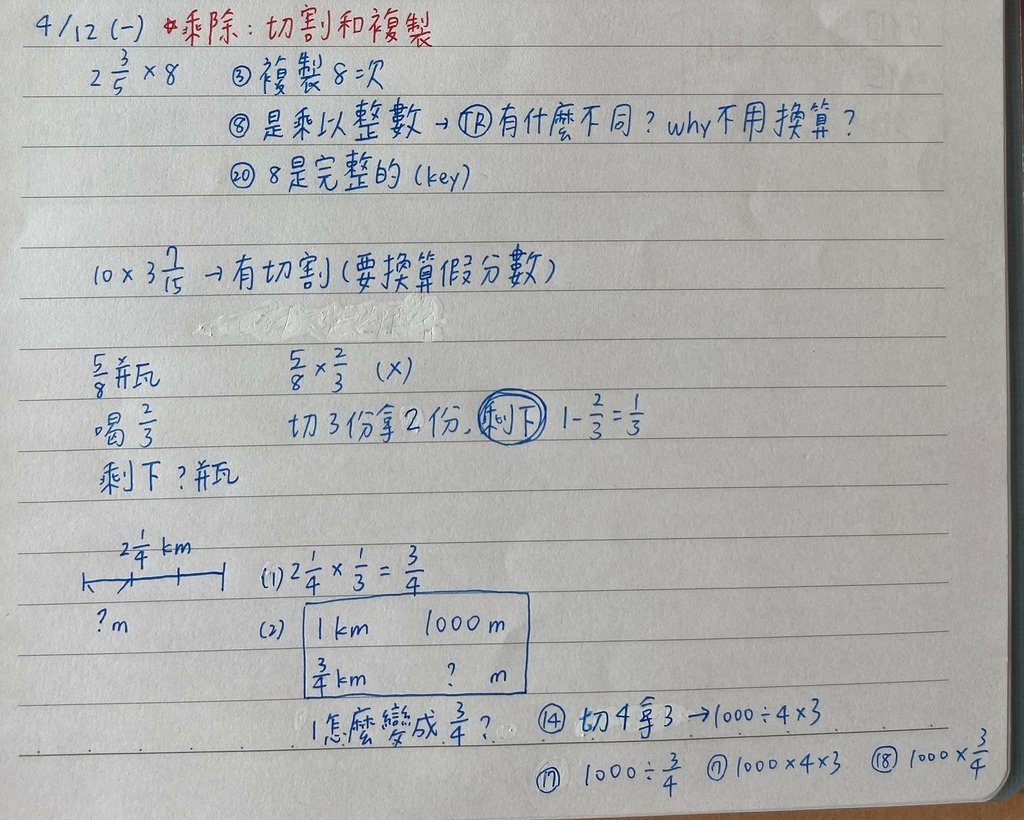 4/12(一) *乘除：切割和複製
2 3/5 × 8 ③ 複製8次
⑧ 是乘以整數 → TR 有什麼不同？why不用換算？
⑳ 8是完整的 (key)
10 × 3 7/15 → 有切割(要換算假分數)
5/8 瓶 5/8 × 2/3 (×)
喝 2/3 切3份拿2份，剩下 1 - 2/3 = 1/3
剩下？瓶
2 1/4 km
(1) 2 1/4 × 1/3 = 3/4
? m
(2) 1 km 1000 m
3/4 km ? m
1怎麼變成 3/4？ ⑭ 切4拿3 → 1000÷4×3
⑰ 1000 ÷ 3/4 ⑦ 1000×4×3 ⑱ 1000 × 3/4